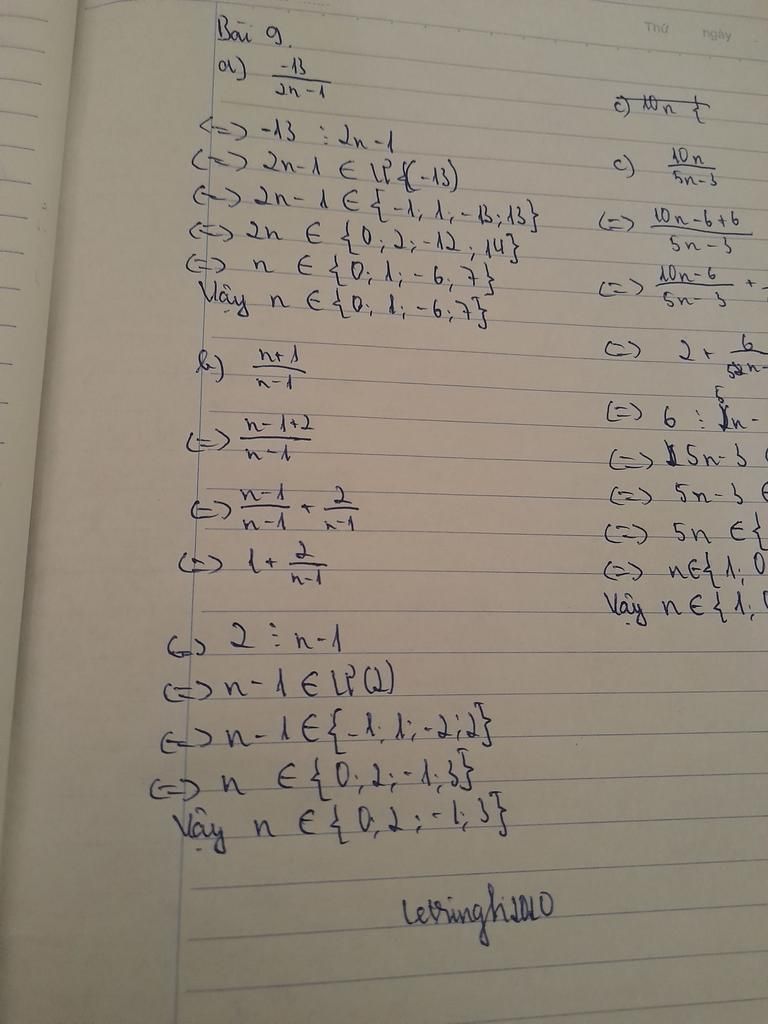 Thứ ngày
Bài 9.
a) -13/(2n-1)
<=> -13 ⋮ 2n-1
<=> 2n-1 ∈ Ư(-13)
<=> 2n-1 ∈ {-1; 1; -13; 13}
<=> 2n ∈ {0; 2; -12; 14}
<=> n ∈ {0; 1; -6; 7}
Vậy n ∈ {0; 1; -6; 7}
b) (n+1)/(n-1)
<=> (n-1+2)/(n-1)
<=> (n-1)/(n-1) + 2/(n-1)
<=> 1 + 2/(n-1)
<=> 2 ⋮ n-1
<=> n-1 ∈ Ư(2)
<=> n-1 ∈ {-1; 1; -2; 2}
<=> n ∈ {0; 2; -1; 3}
Vậy n ∈ {0; 2; -1; 3}
c) 10n {
c) 10n/(5n-3)
<=> (10n-6+6)/(5n-3)
<=> (10n-6)/(5n-3) +
<=> 2 + 6/
<=> 6 ⋮ 5n-
<=> 5n-3
<=> 5n-3 ∈
<=> 5n ∈ {
<=> n ∈ {1; 0
Vậy n ∈ {1;